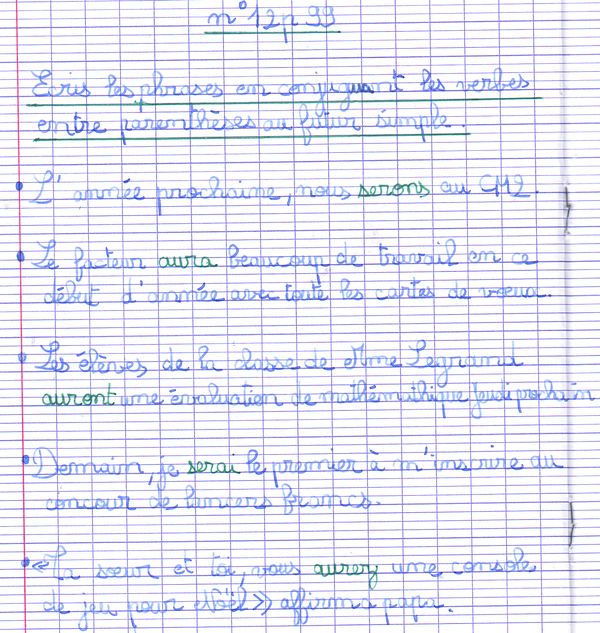 n° 12 p 99
Ecris les phrases en conjuguant les verbes
entre parenthèses au futur simple.
• L'année prochaine, nous serons au CM2.
• Le facteur aura beaucoup de travail en ce
début d'année avec toute les cartes de vœux.
• Les élèves de la classe de Mme Legrand
auront une évaluation de mathémathique jeudi prochain
• Demain, je serai le premier à m'inscrire au
concour de l'univers francs.
• « Ta sœur et toi, vous aurez une console
de jeu pour Noël » affirma papa.